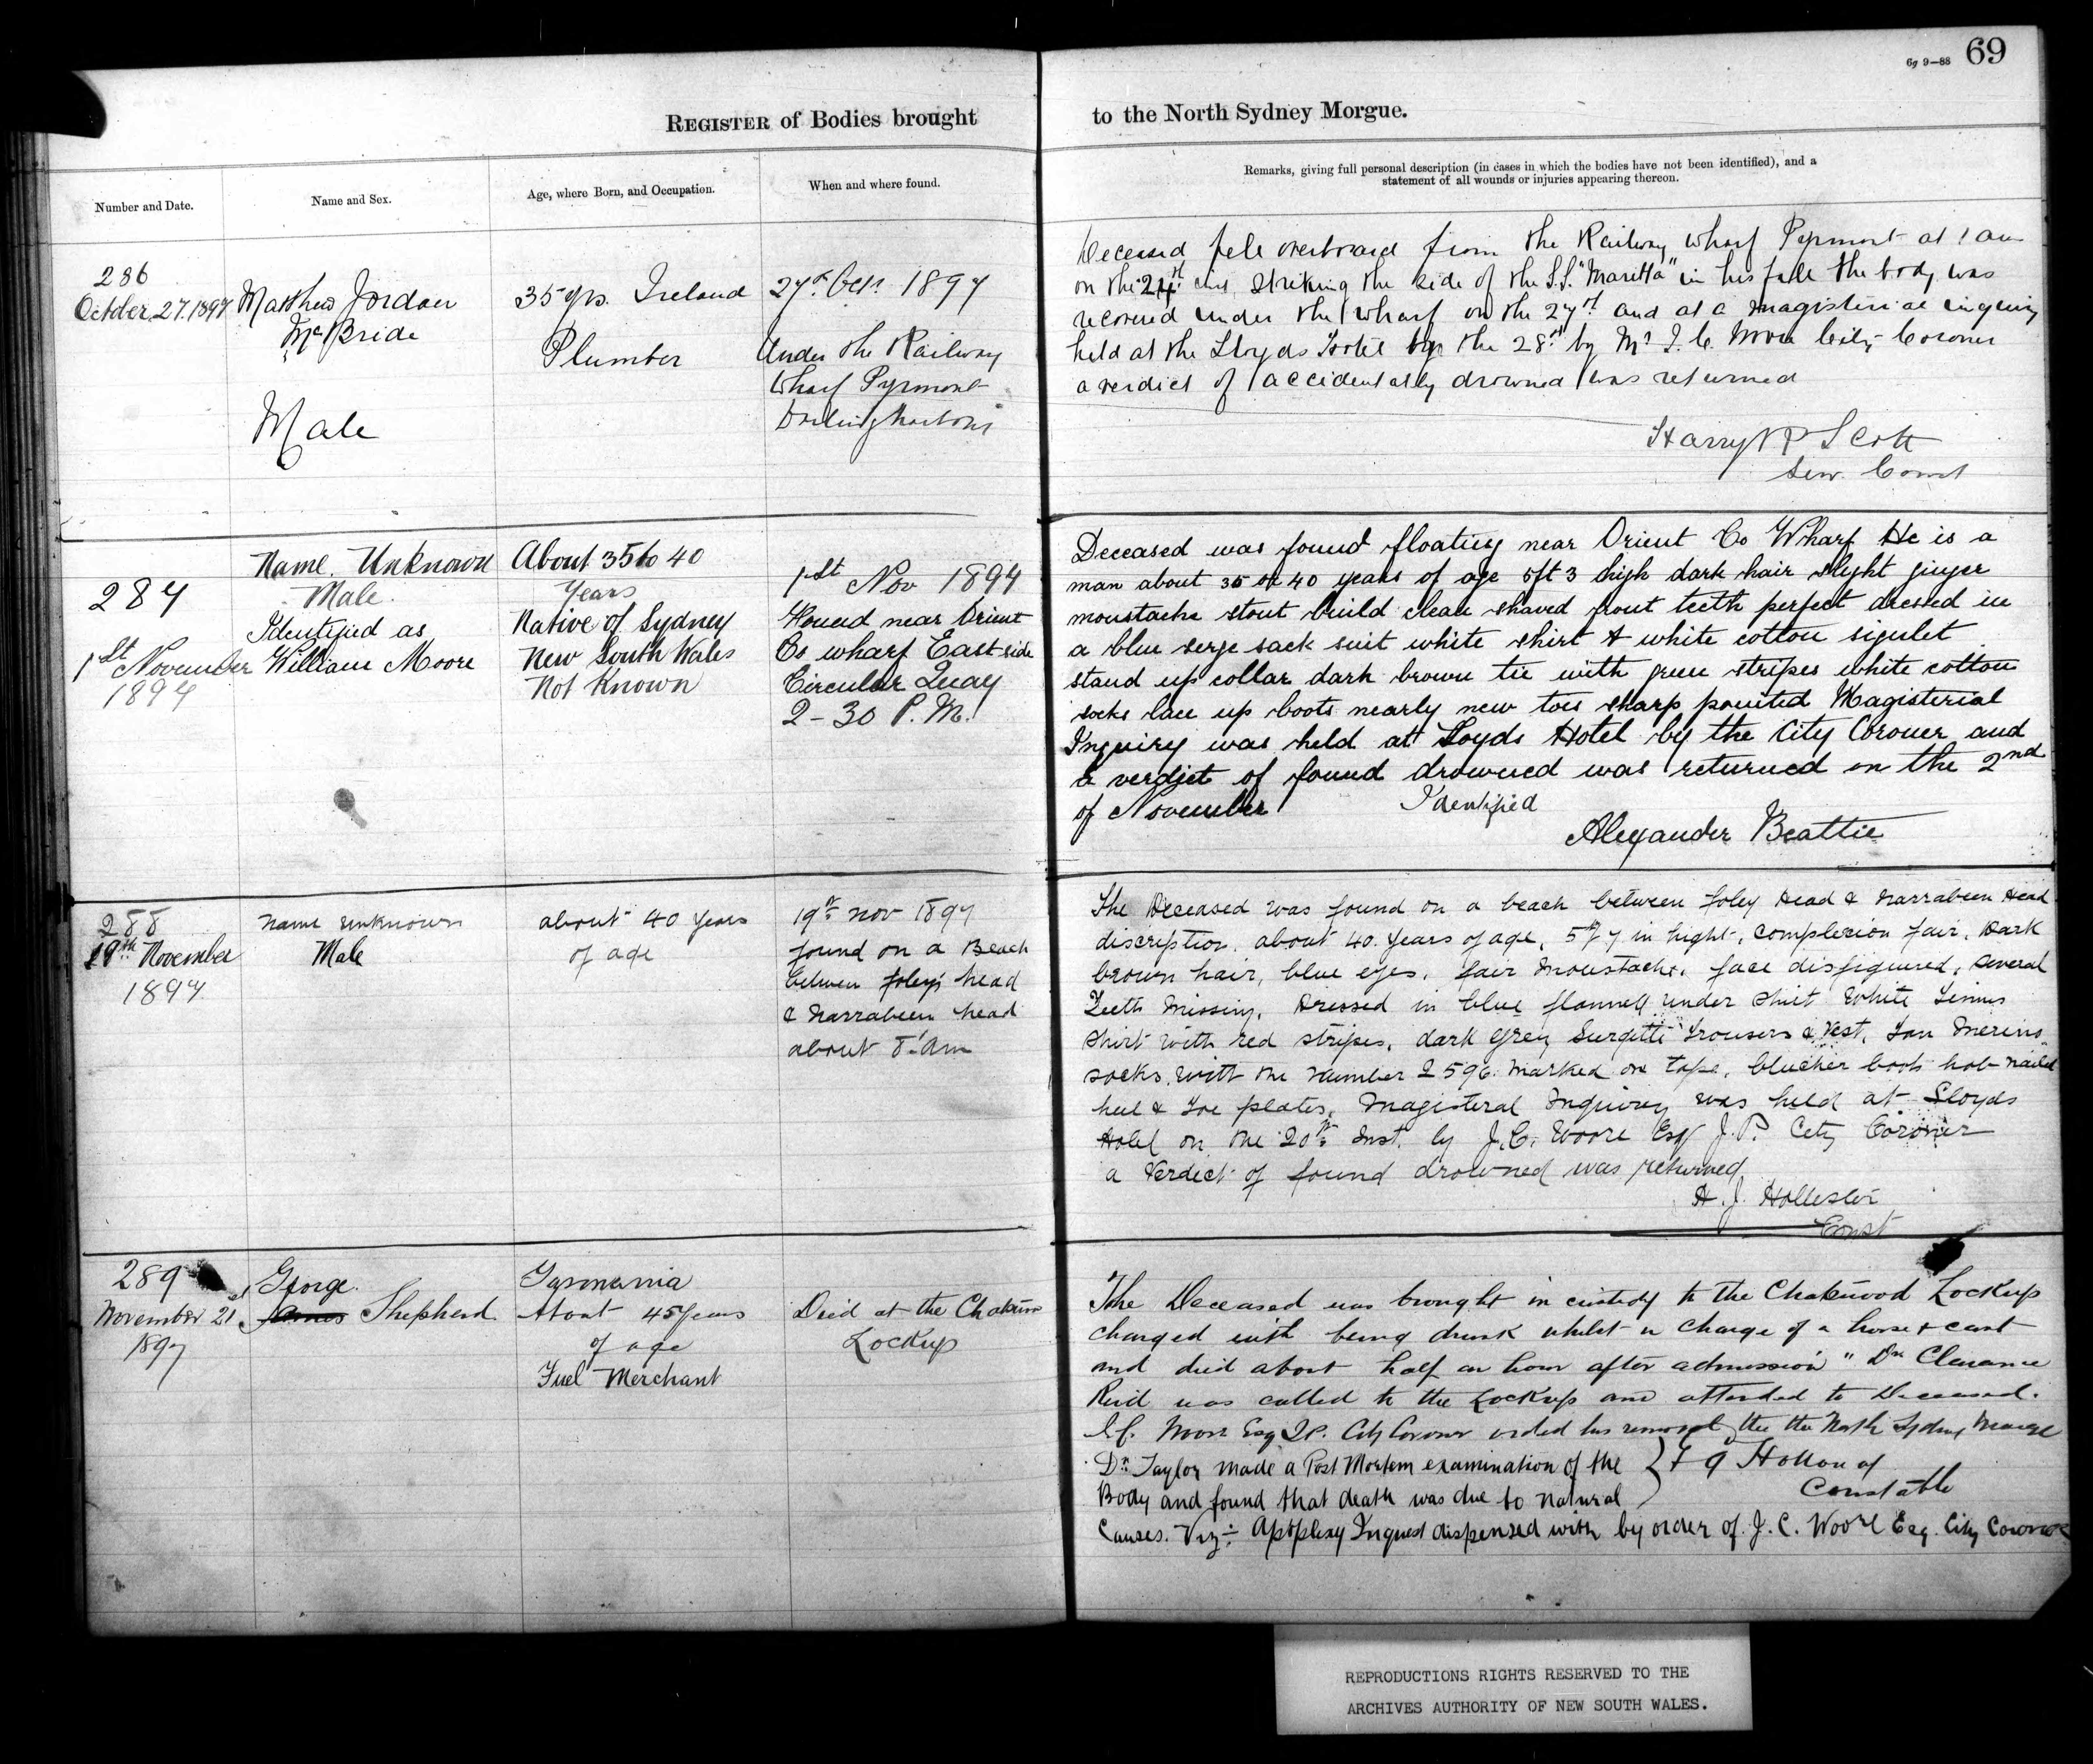 69 9—88 69
REGISTER of Bodies brought to the North Sydney Morgue.
Number and Date.
Name and Sex.
Age, where Born, and Occupation.
When and where found.
Remarks, giving full personal description (in cases in which the bodies have not been identified), and a
statement of all wounds or injuries appearing thereon.
286
October 27. 1897
Matthew Jordan
McBride
Male
35 yrs. Ireland
Plumber
27th Octr 1897
Under the Railway
Wharf Pyrmont
Darling Harbour
Deceased fell overboard from the Railway Wharf Pyrmont at 1 am
on the 24th inst striking the side of the S.S. "Maretta" in his fall the body was
recovered under the wharf on the 27th and at a magisterial inquiry
held at the Lloyds Hotel the 28th by Mr J. C. Woore City Coroner
a verdict of accidentally drowned was returned
Harry P Scott
Sen. Const
287
1st November
1897
Name Unknown
Male.
Identified as
William Moore
About 35 to 40
Years
Native of Sydney
New South Wales
Not Known
1st Nov 1897
Found near Orient
Co wharf East side
Circular Quay
2-30 P.M.
Deceased was found floating near Orient Co Wharf He is a
man about 35 or 40 years of age 5ft 3 high dark hair slight ginger
moustache stout build clean shaved front teeth perfect dressed in
a blue serge sack suit white shirt & white cotton singlet
stand up collar dark brown tie with green stripes white cotton
socks lace up boots nearly new toes sharp pointed Magisterial
Inquiry was held at Loyds Hotel by the City Coroner and
a verdict of found drowned was returned on the 2nd
of November Identified
Alexander Beattie
288
19th November
1897
Name unknown
Male
about 40 years
of age
19th Nov 1897
found on a Beach
between foleys head
& Narrabeen head
about 8. am
The Deceased was found on a beach between foley Head & Narrabeen Head
discription. about 40. years of age, 5ft 7 in hight, complexion fair, Dark
brown hair, blue eyes, fair moustache, face disfigured, several
Teeth missing, Dressed in blue flannell under shirt White Linnen
shirt with red stripes, dark grey Surgette Trousers & Vest, Tan Merino
socks, with the number 2596 marked on tape, blucher boots hob nailed
heel & toe plates, Magisteral Inquirey was held at Lloyds
Hotel on the 20th Inst. by J.C. Woore Esq J.P. City Coroner
a Verdict of found drowned was returned
A. J. Hollester
Const
289
November 21st
1897
George
James Shepherd
Tasmania
About 45 years
of age
Fuel Merchant
Died at the
Lockup
The Deceased was brought in custody to the Chatswood Lockup
charged with being drunk whilst in charge of a horse & cart
and died about half an hour after admission " Dr Clarence
Reid was called to the Lockup and attended to Deceased.
J.C. Woore Esq J.P. City Coroner orded his removal to the North Sydney Morgue
Dr Taylor made a Post Mortem examination of the
Body and found that death was due to natural
Constable
causes. Viz:- Apoplexy Inquest dispensed with by order of J. C. Woore Esq. City Coroner
REPRODUCTIONS RIGHTS RESERVED TO THE
ARCHIVES AUTHORITY OF NEW SOUTH WALES.